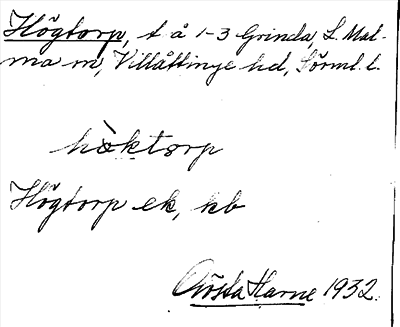 Högtorp, t å 1-3 Grinda, L. Mal-
ma sn, Villåttinge hd, Sörml. l.
hòktorp
Högtorp ek, kb
Gösta Harne 1932.